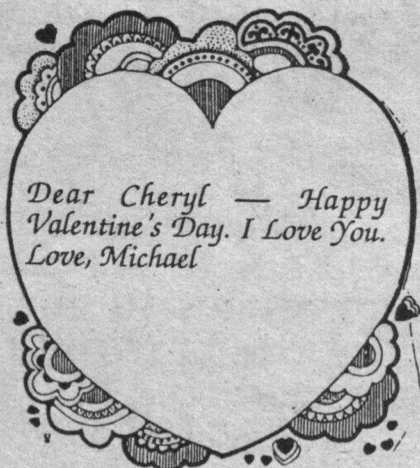 Dear Cheryl — Happy
Valentine's Day. I Love You.
Love, Michael